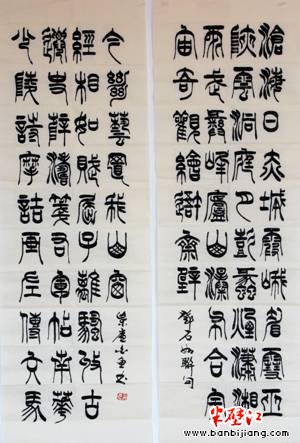 滄海日赤城霞峨眉雪巫
峽雲洞庭月彭蠡煙瀟湘
雨武彝峰廬山瀑布合宇
宙奇觀繪吾齋壁
鄧石如聯句
少陵詩摩詰畫左傳文馬
遷史薛濤箋右軍帖南華
經相如賦屈子離騷收古
今絕藝置我山窗
半壁江
www.banbijiang.com